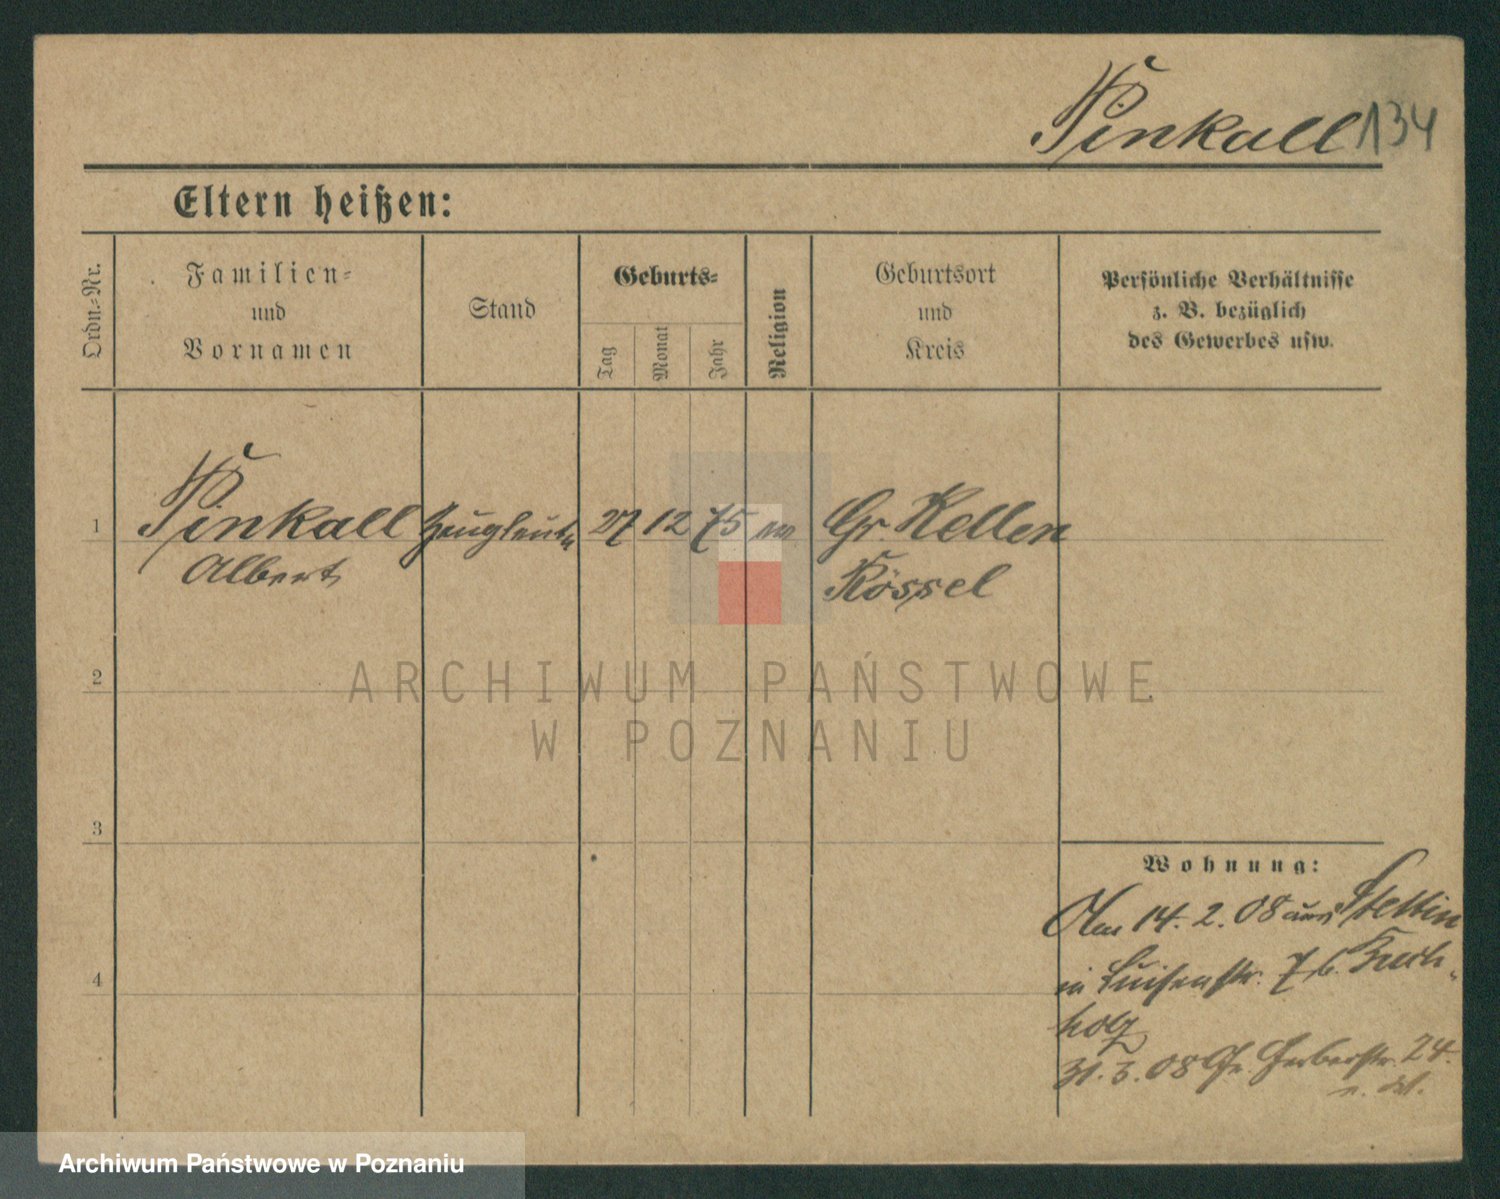 Pinkall 134
Eltern heißen:
Ordn.-Nr.
Familien-
und
Vornamen
Stand
Geburts-
Tag
Monat
Jahr
Religion
Geburtsort
und
Kreis
Persönliche Verhältnisse
z. B. bezüglich
des Gewerbes usw.
1 Pinkall 27 12 75 Gr. Kellen
Albert Rössel
2
3
4
Wohnung:
Am 14. 2. 08 aus Stettin
in Luisenstr. 7 b.
holz
31. 3. 08 Gr. Gerberstr. 24.
ARCHIWUM PAŃSTWOWE
W POZNANIU
Archiwum Państwowe w Poznaniu